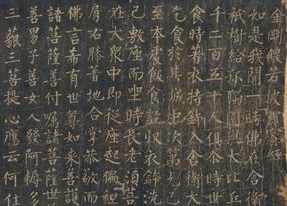 金剛般若波羅蜜經
如是我聞一時佛在舍衛
祇樹給孤獨園與大比丘
千二百五十人俱尒時世
食時著衣持鉢入舍衛大
乞食於其城中次第乞已
至本處飯食訖收衣鉢洗
已敷座而坐時長老須菩
在大眾中即從座起偏袒
肩右膝著地合掌恭敬而
佛言希有世尊如來善護
諸菩薩善付囑諸菩薩世
善男子善女人發阿耨多
三藐三菩提心應云何住